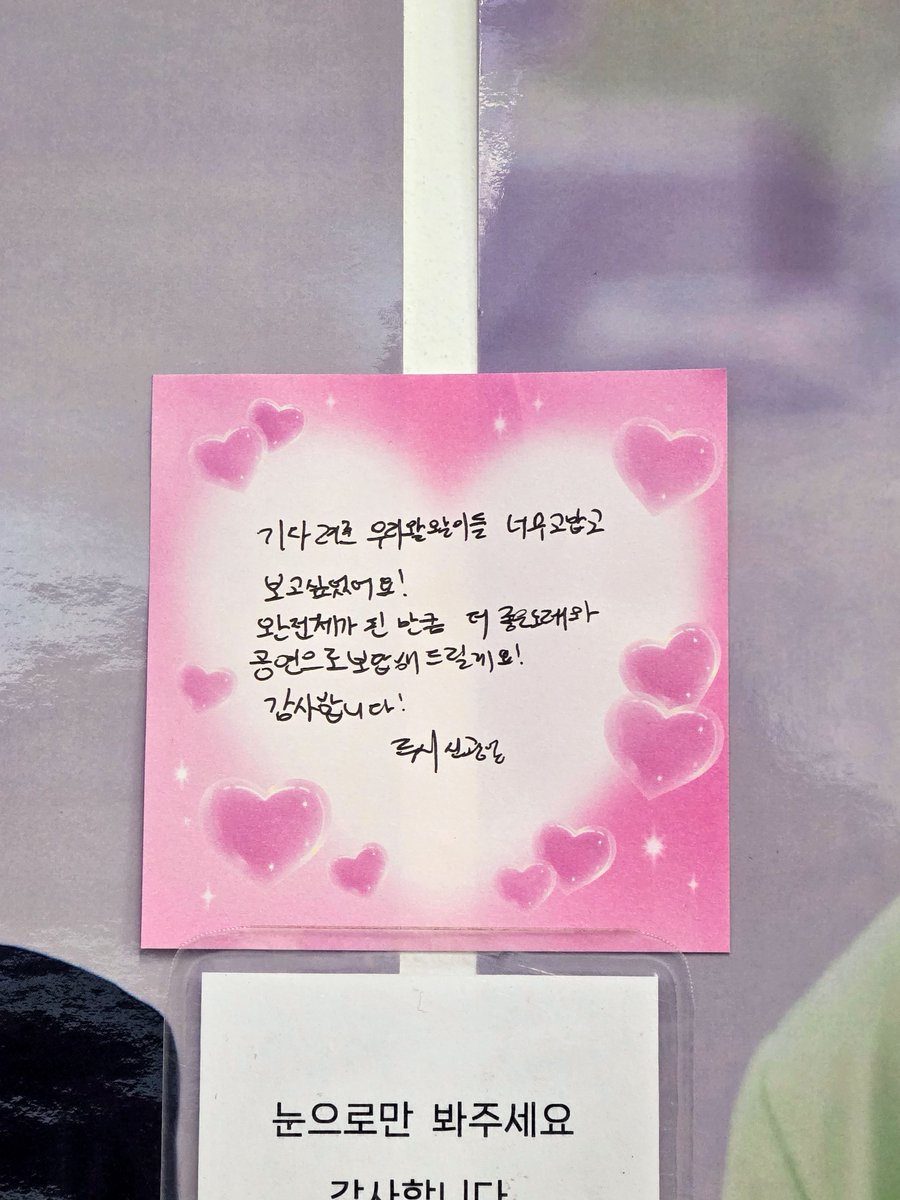 기다려준 우리왈왈이들 너무고맙고
보고싶었어요!
완전체가 된 만큼 더 좋은노래와
공연으로보답해드릴게요!
감사합니다!
루시 신광일
눈으로만 봐주세요
감사합니다